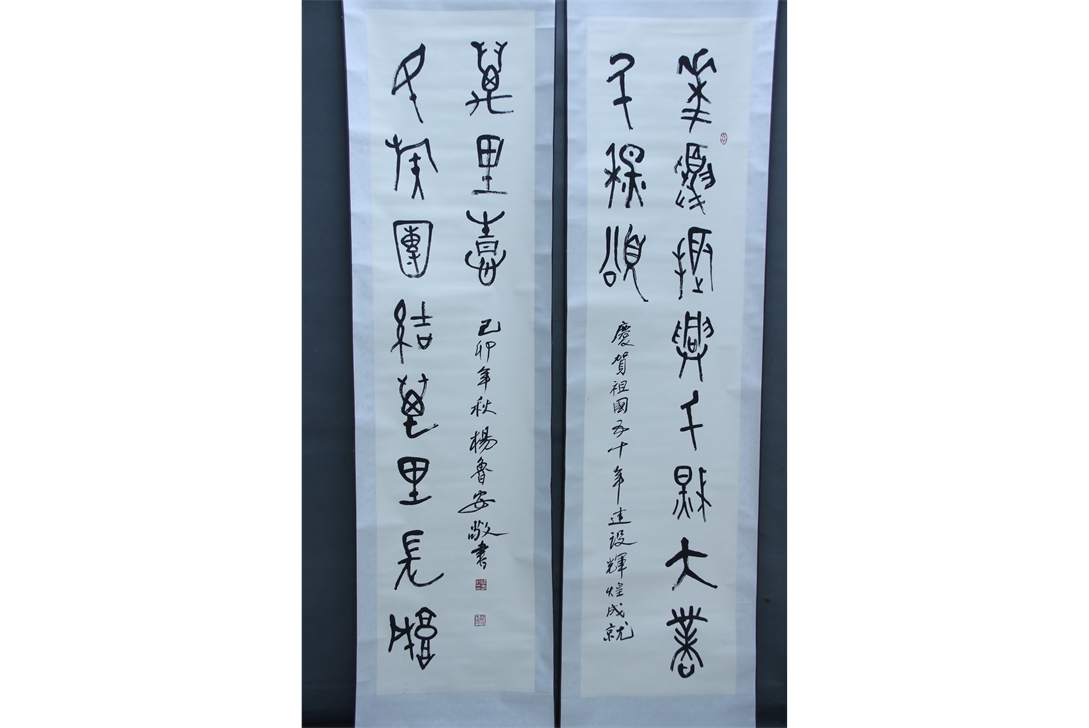 華夏振興千秋大業
千秋頌
慶賀祖國五十年建設輝煌成就
民族團結萬里長城
萬里喜
己卯年秋楊魯安敬書